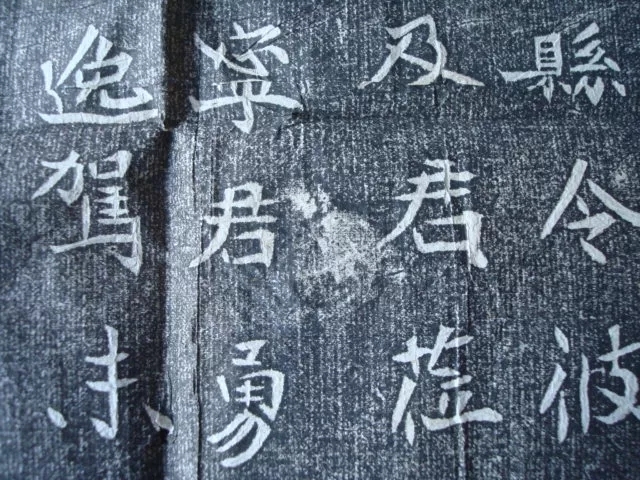 縣令彼
及君莅
寧君勇
逸駕未